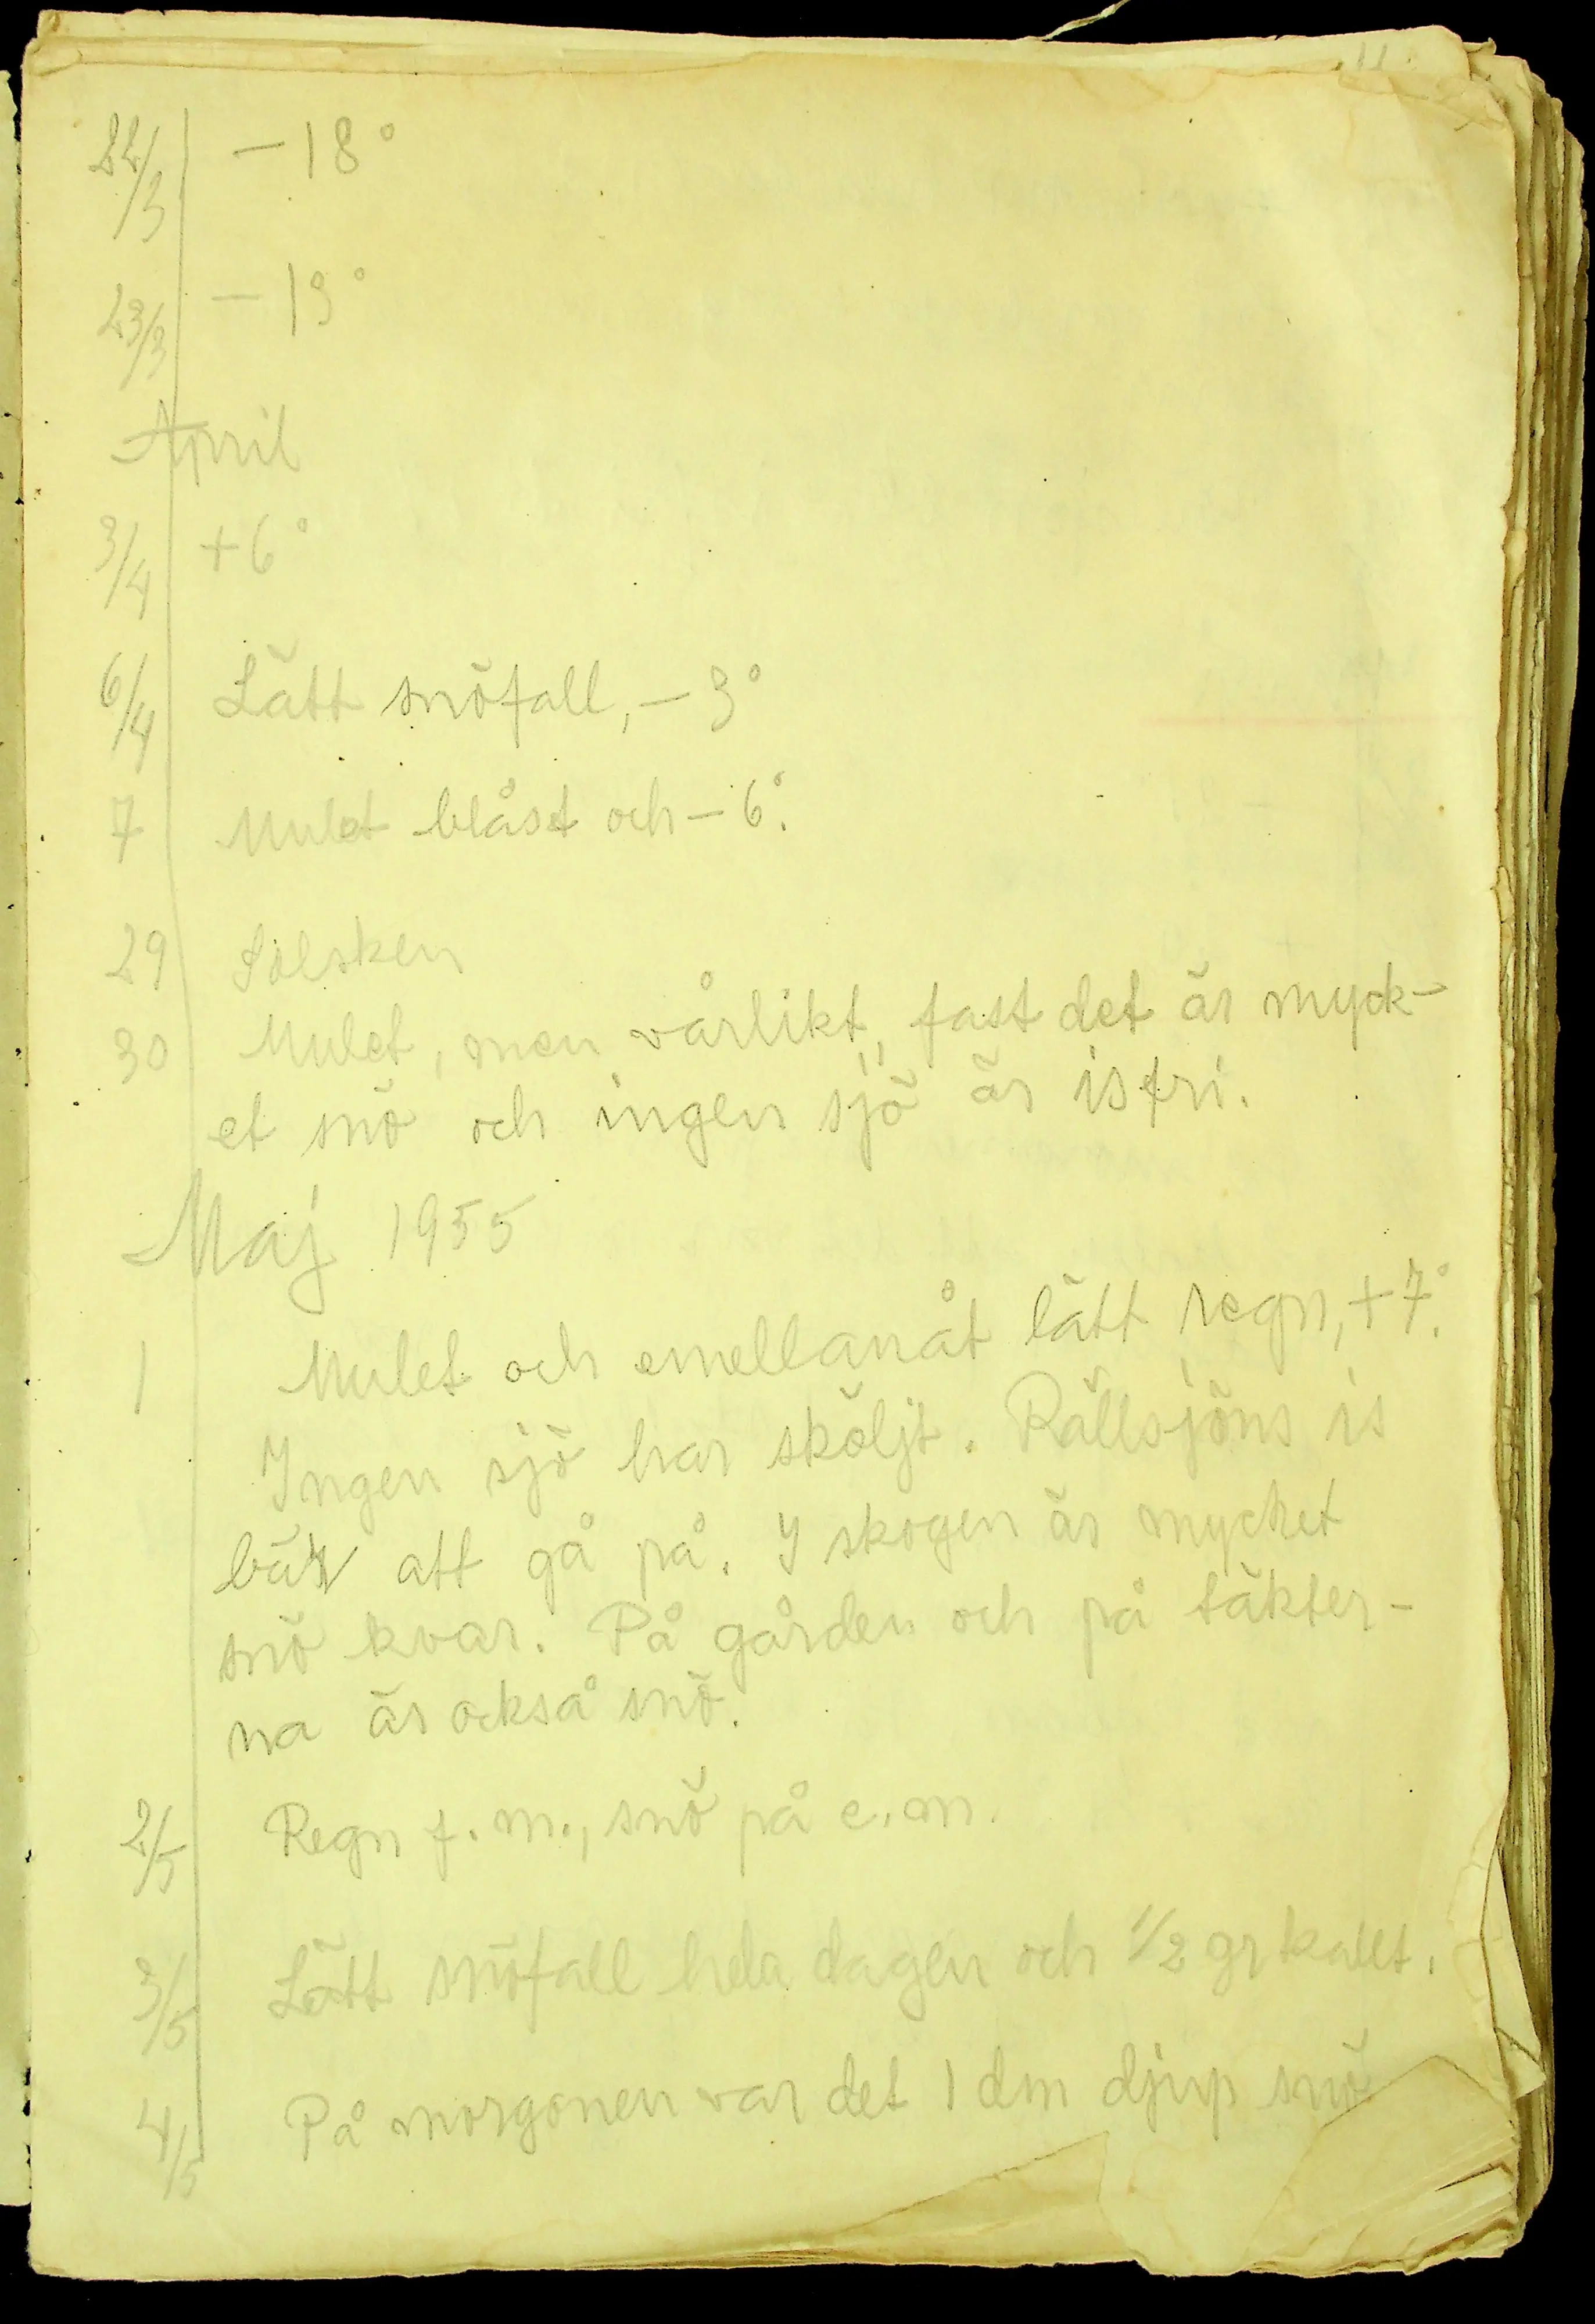 11.
22/3 -18°
23/3 -19°
April
3/4 +6°
6/4 Lätt snöfall, -3°
7 Mulet blåst och -6°.
29 Solsken
30 Mulet, men vårlikt, fast det är myck-
et snö och ingen sjö är isfri.
Maj 1955
1 Mulet och emellanåt lätt regn, +7°.
Ingen sjö har sköljt. Rällsjöns is
bär att gå på. I skogen är mycket
snö kvar. På gården och på täkter-
na är också snö.
2/5 Regn f.m., snö på e.m.
3/5 Lätt snöfall hela dagen och 1/2 gr kallt.
4/5 På morgonen var det 1 dm djup snö